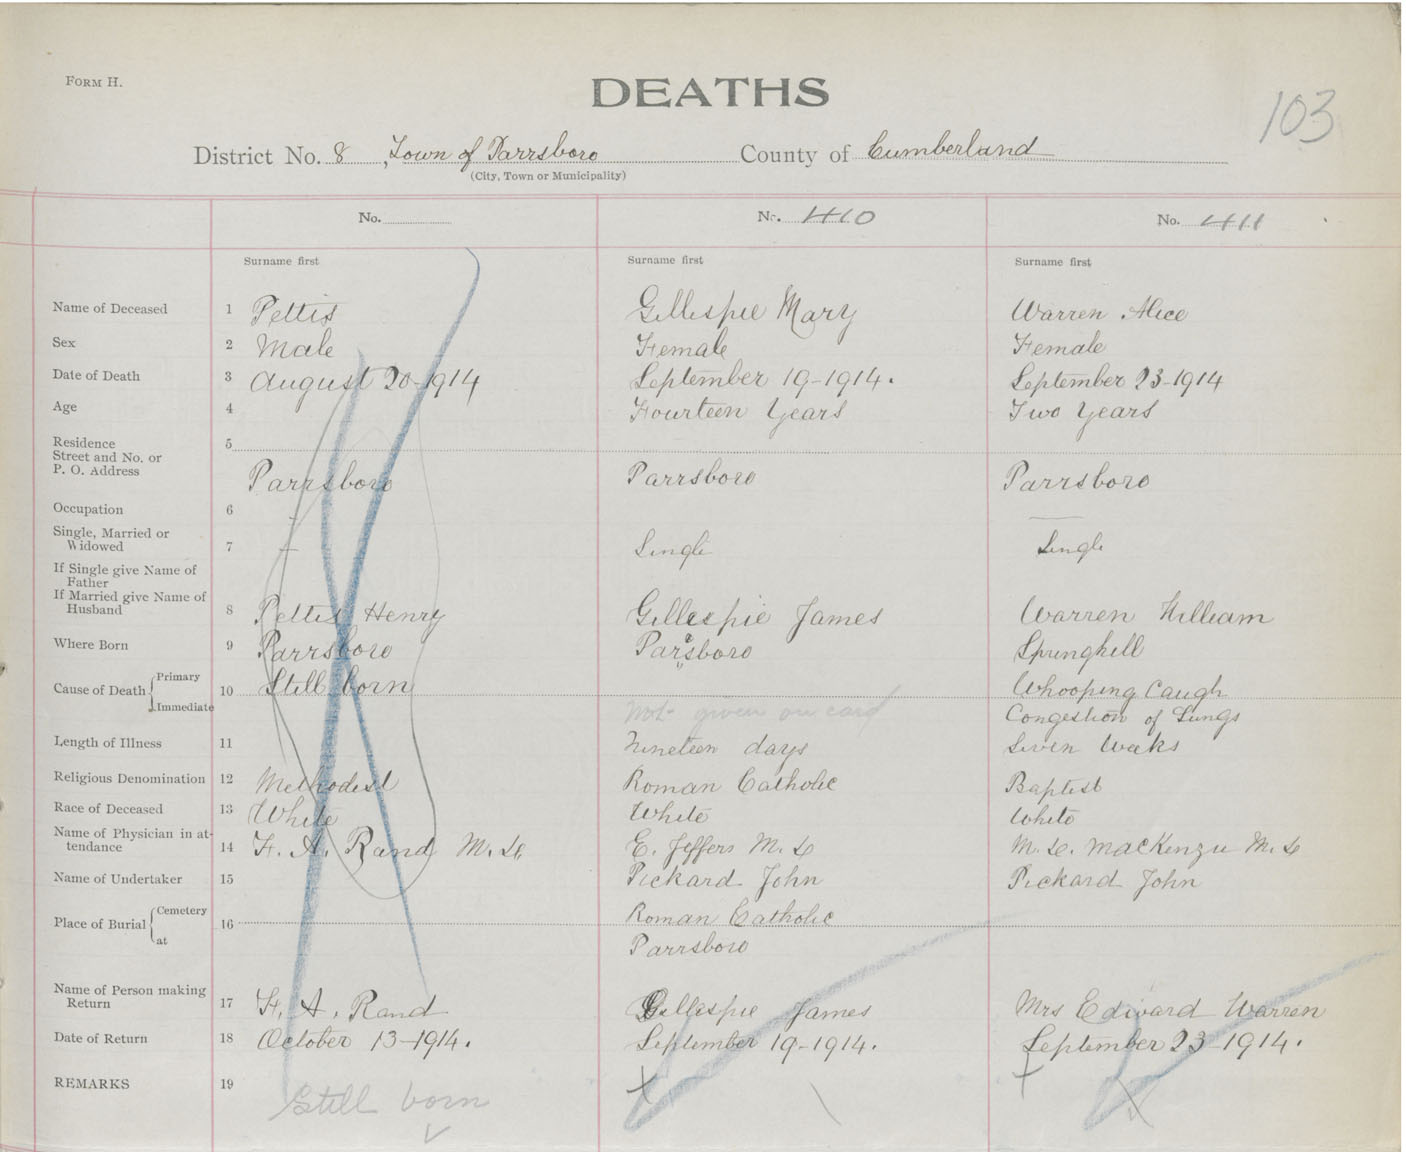 FORM H.
DEATHS
103
District No. 8, Town of Parrsboro County of Cumberland
(City, Town or Municipality)
No. No. 410 No. 411
Surname first Surname first Surname first
Name of Deceased 1 Pettis Gillespie Mary Warren Alice
Sex 2 Male Female Female
Date of Death 3 August 20-1914 September 19-1914. September 23-1914
Age 4 Fourteen Years Two Years
Residence 5
Street and No. or
P. O. Address Parrsboro Parrsboro Parrsboro
Occupation 6
Single, Married or
Widowed 7 Single Single
If Single give Name of
Father
If Married give Name of
Husband 8 Pettis Henry Gillespie James Warren William
Where Born 9 Parrsboro Parrsboro Springhill
Cause of Death Primary 10 Still born Whooping Caugh
Immediate Not given on card Congestion of Lungs
Length of Illness 11 Nineteen days Seven Weeks
Religious Denomination 12 Methodist Roman Catholic Baptist
Race of Deceased 13 White White White
Name of Physician in at-
tendance 14 F. A. Rand M. D. E. Jeffers M. D M. D. MacKenzie M. D
Name of Undertaker 15 Pickard John Pickard John
Place of Burial Cemetery 16 Roman Catholic
at Parrsboro
Name of Person making
Return 17 F. A. Rand Gillespie James Mrs Edward Warren
Date of Return 18 October 13-1914. September 19-1914. September 23-1914.
REMARKS 19 Still born